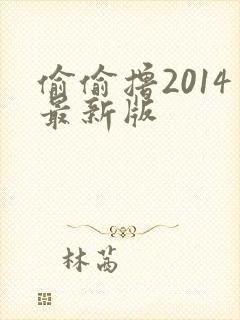 偷偷撸2014
最新版
林茜